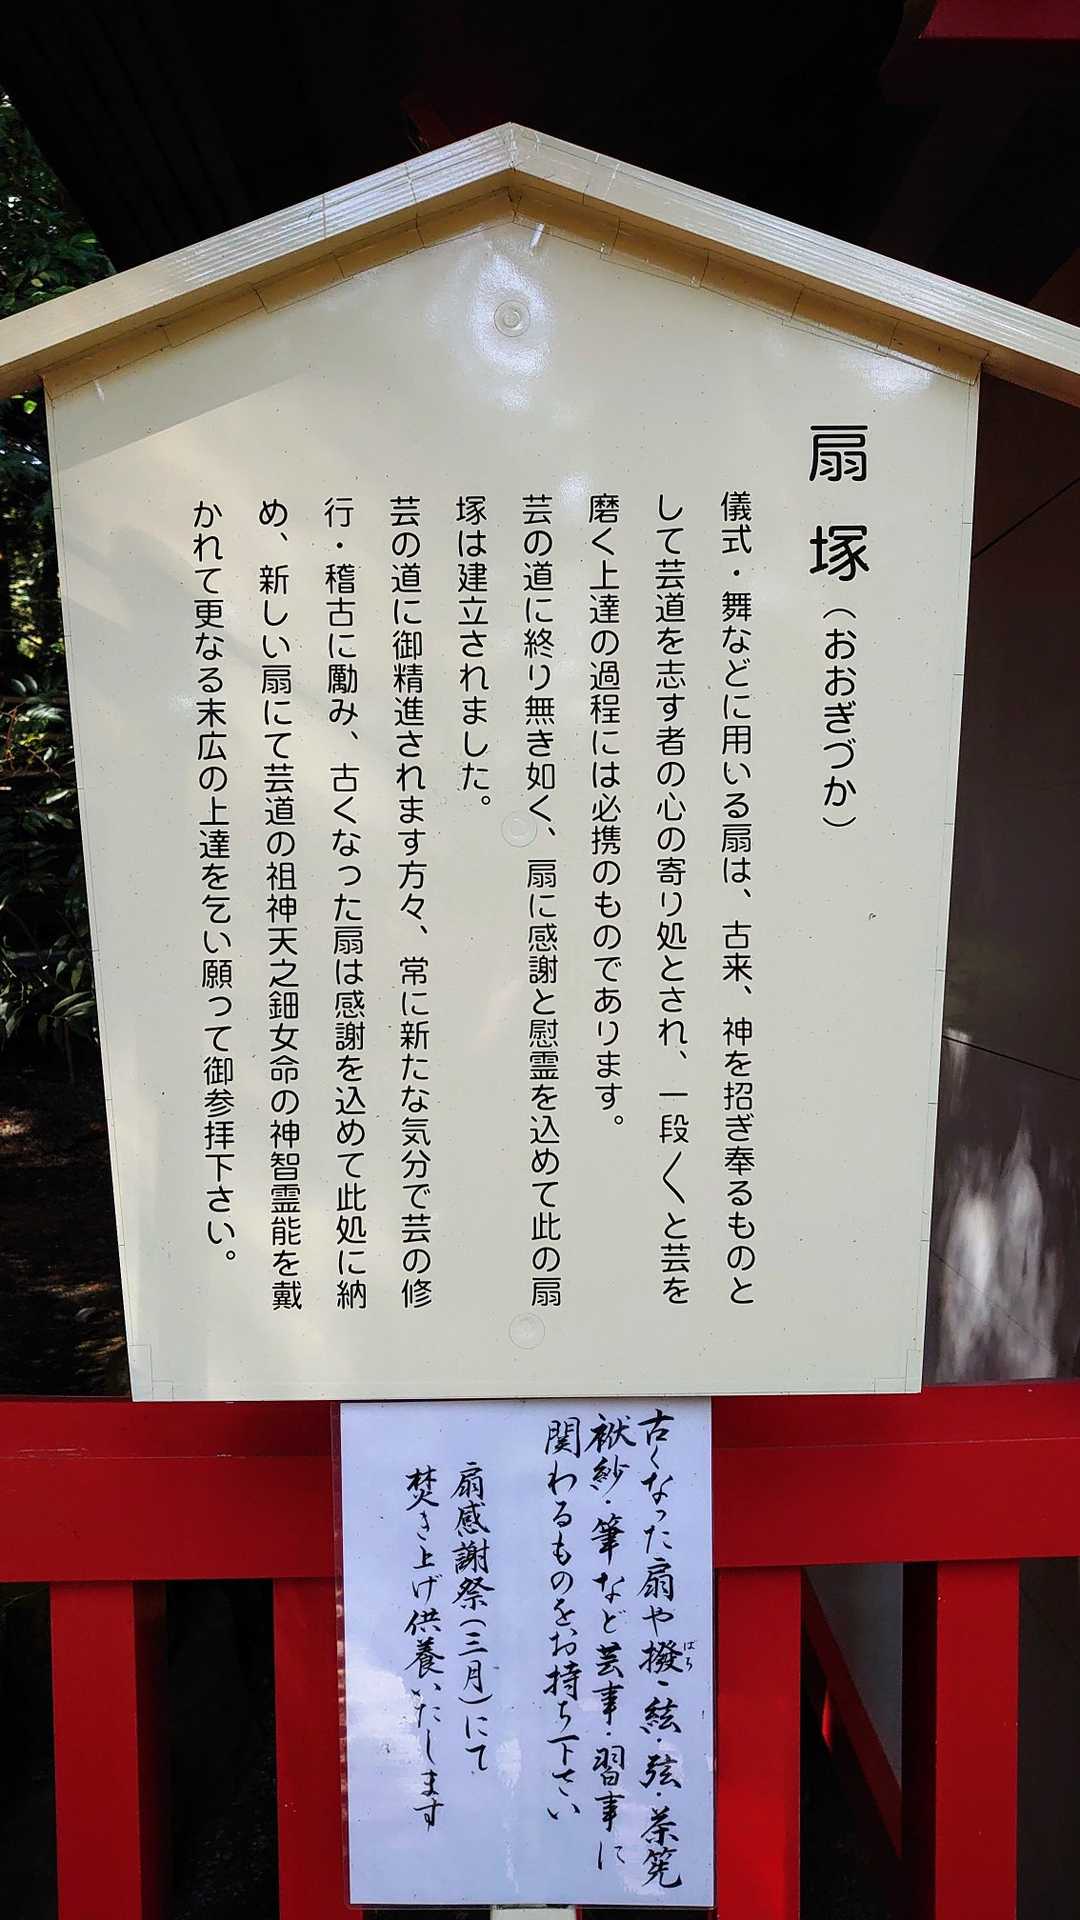 扇塚（おおぎづか）
儀式・舞などに用いる扇は、古来、神を招ぎ奉るものと
して芸道を志す者の心の寄り処とされ、一段〱と芸を
磨く上達の過程には必携のものであります。
芸の道に終り無き如く、扇に感謝と慰霊を込めて此の扇
塚は建立されました。
芸の道に御精進されます方々、常に新たな気分で芸の修
行・稽古に勵み、古くなった扇は感謝を込めて此処に納
め、新しい扇にて芸道の祖神天之鈿女命の神智霊能を戴
かれて更なる末広の上達を乞い願って御参拝下さい。
古くなった扇や撥・絃・弦・茶筅
ばち
袱紗・筆など芸事・習事に
関わるものをお持ち下さい
扇感謝祭（三月）にて
焚き上げ供養いたします